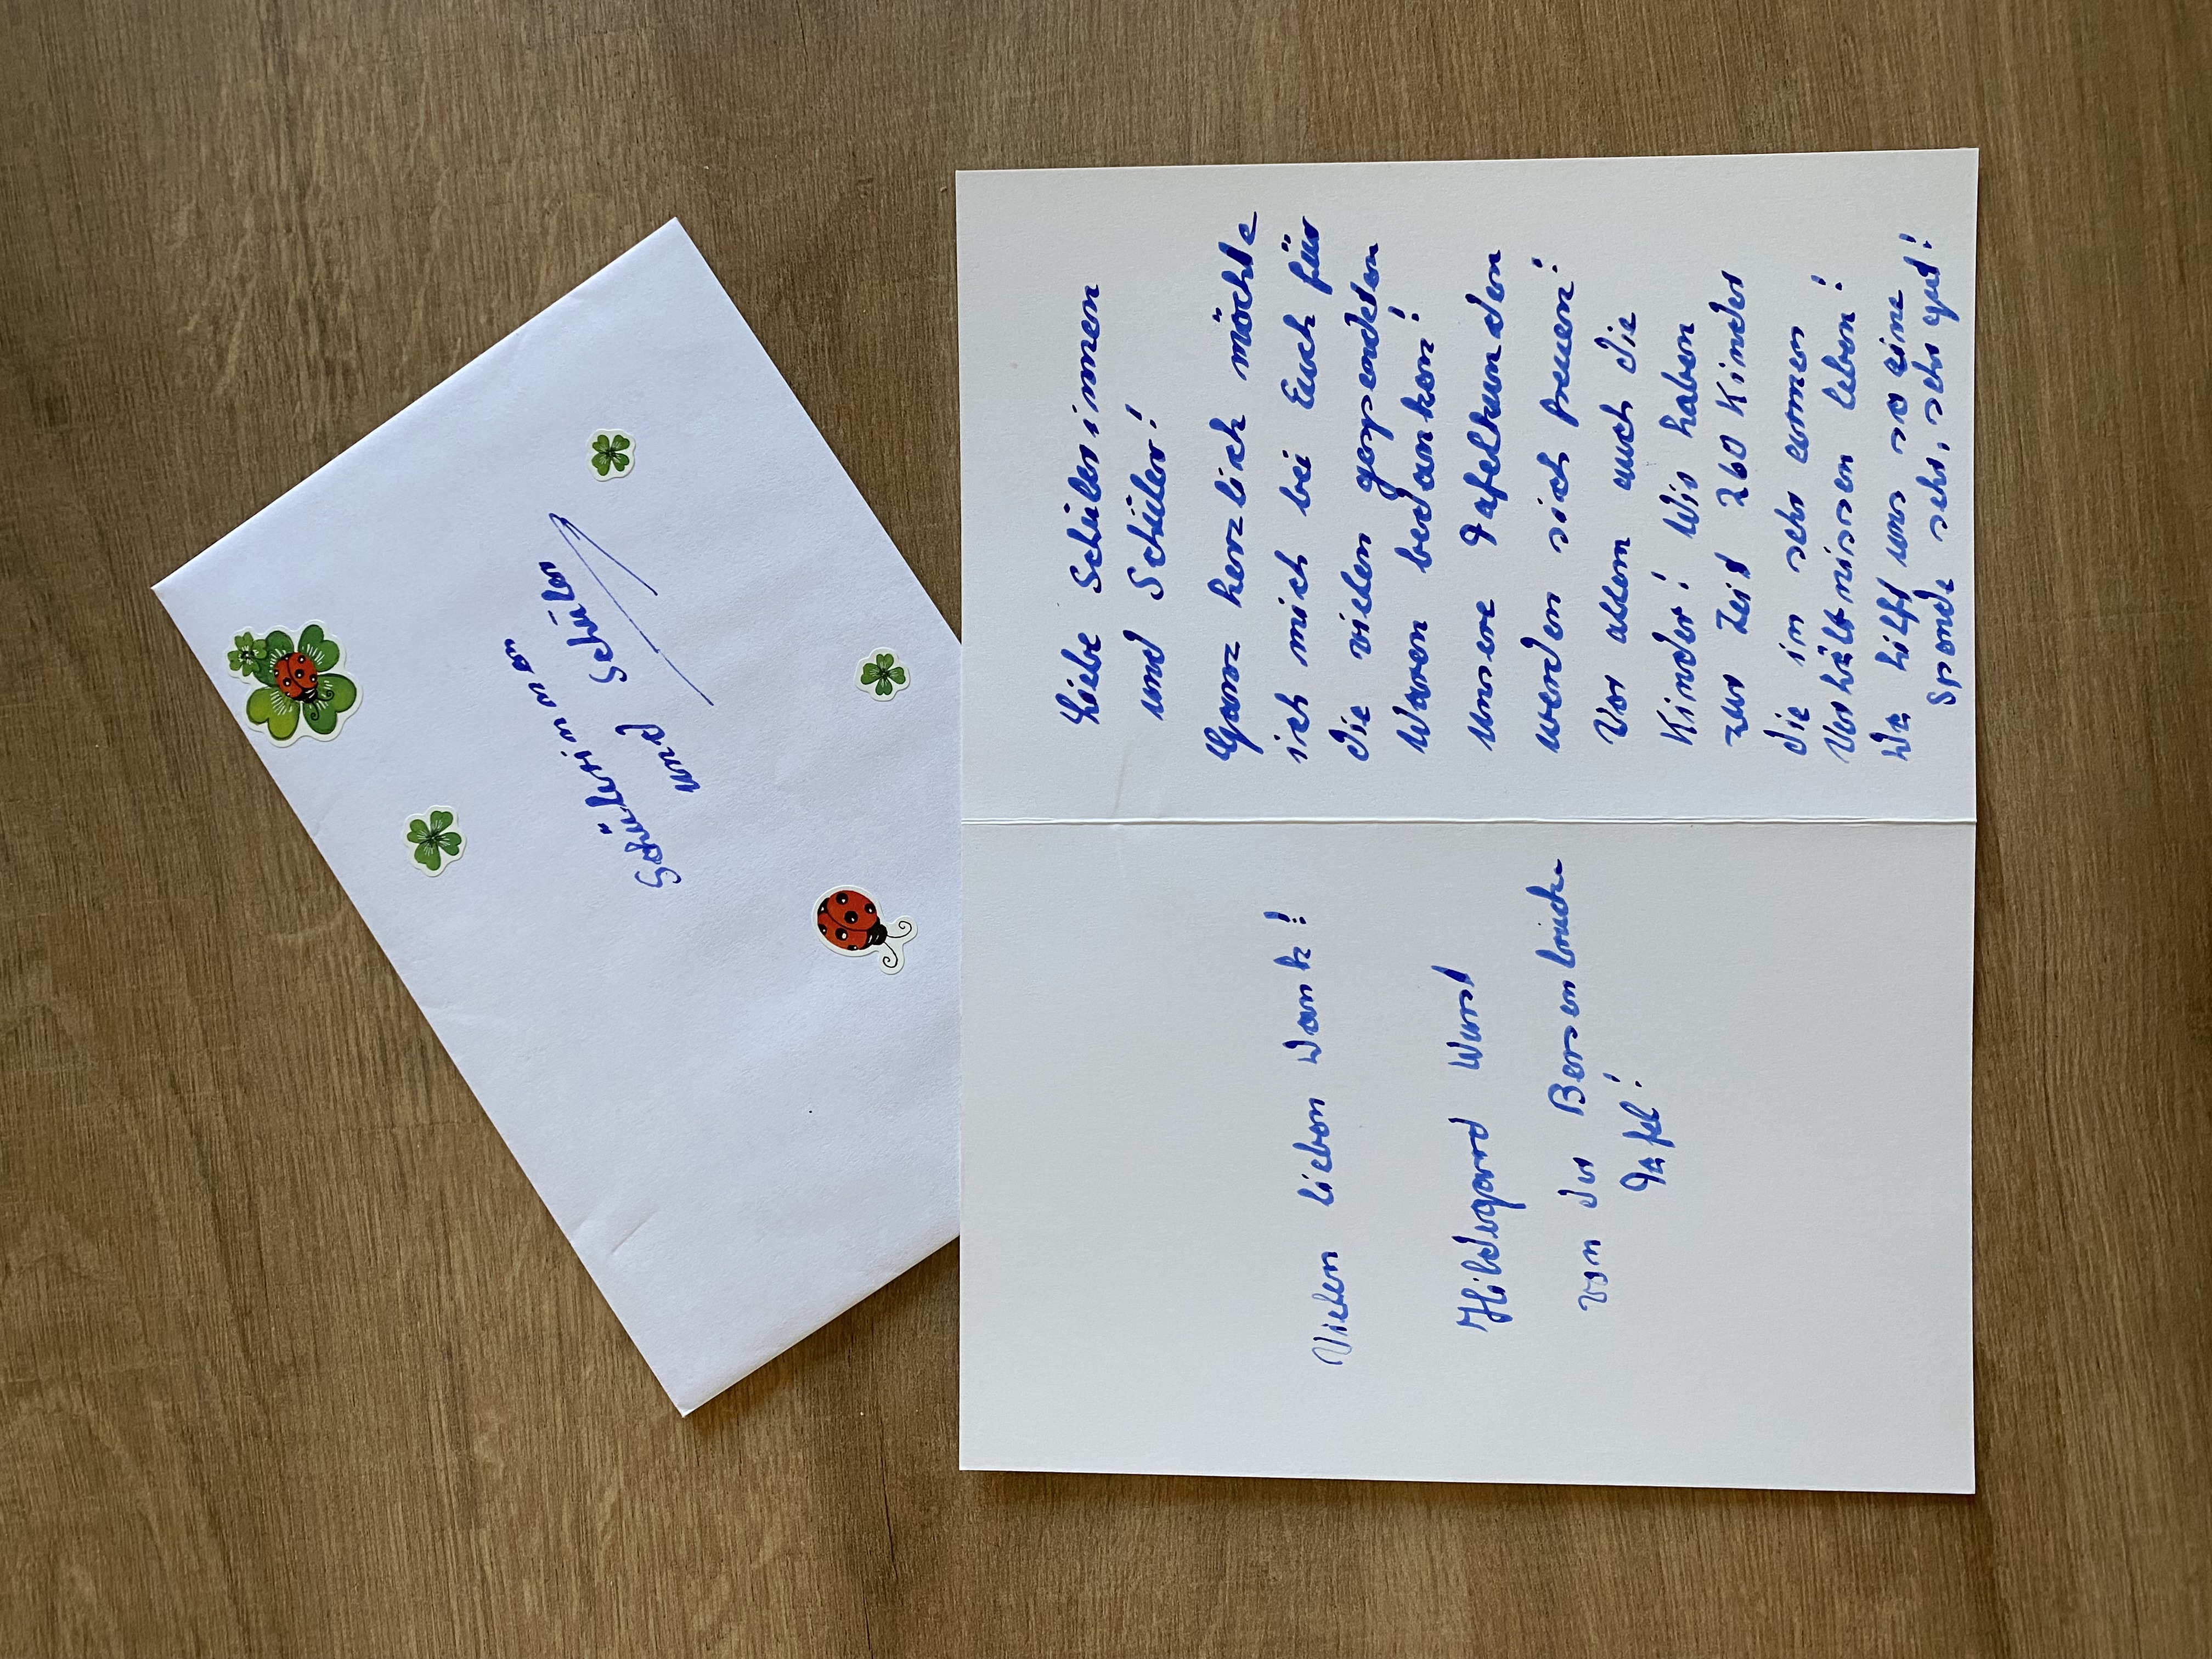 Schülerinnen
und Schüler
Liebe Schülerinnen
und Schüler!
Ganz herzlich möchte
ich mich bei Euch für
die vielen gespendeten
Waren bedanken!
Unsere Tafelkunden
werden sich freuen!
Vor allem auch die
Kinder! Wir haben
zur Zeit 260 Kinder
die in sehr armen
Verhältnissen leben!
Da hilft uns so eine
Spende sehr, sehr gut!
Vielen lieben Dank!!
Hildegard Wust
von der Bersenbrücke
Tafel!